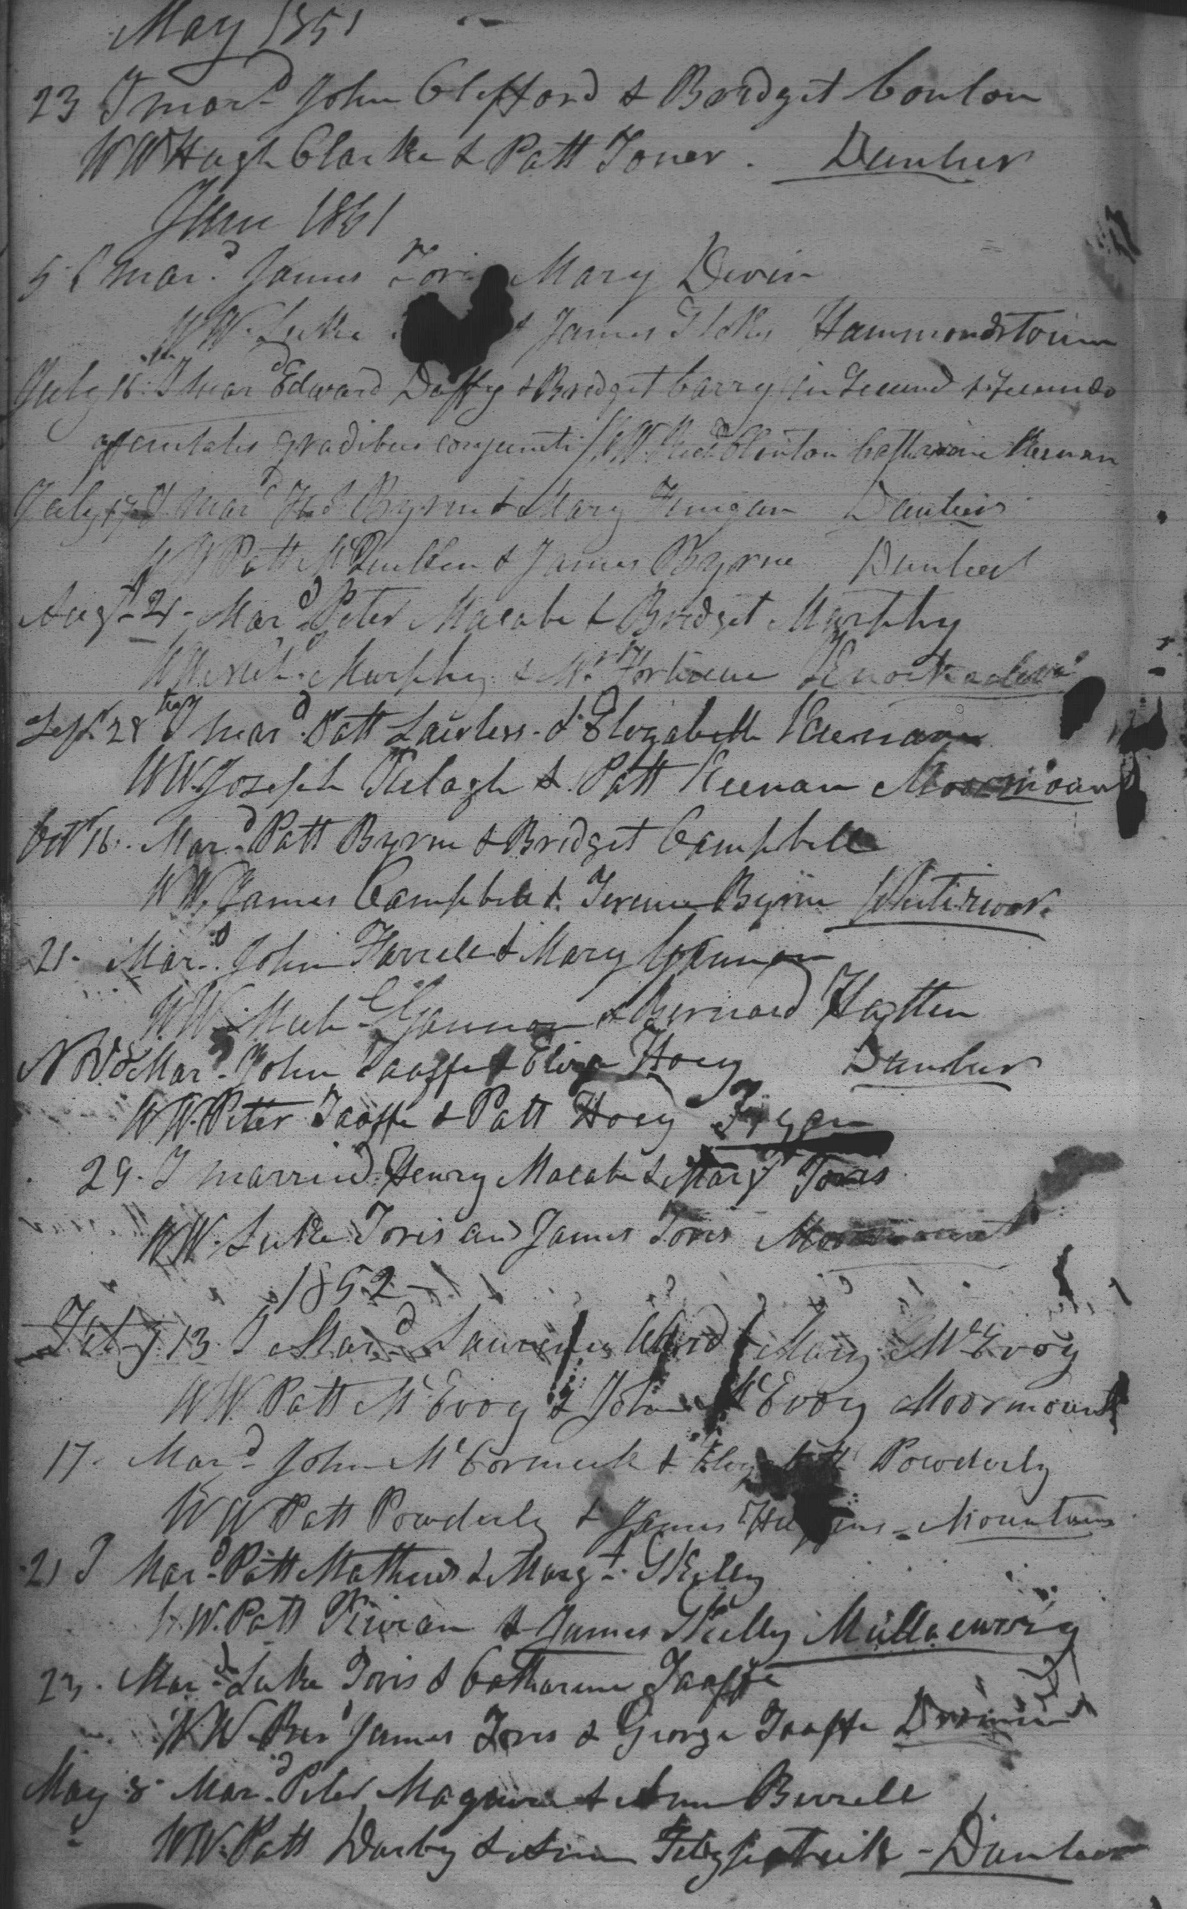 May 1851
23 I mard John Clifford & Bridget Conlon
WW Hugh Clarke & Patt Toner. Dunleer
June 1851
5 I mard James Toris Mary Devin
WW. Luke & James Hammondstown
July 16th I mard Edward Duffy & Bridget Carry in secund & secundo
affinitatis gradibus conjuncti WW Clinton Catharine Keenan
July 17 I mard Byrne & Mary Finigan Dunleer
WW Patt McQuillen & James Byrne Dunleer
Augt 21 - Mard Peter Macabe & Bridget Murphy
WW Murphy & Mr
Sept 28th I mard Patt Lawless & Elizabeth Keenan
WW. Joseph Kelagh & Patt Keenan Moormount
Octr 16. Mard Patt Byrne & Bridget Campbell
WW. James Campbell & Terence Byrne Whiteriver
21. Mard John Farrell & Mary Gannon
WW. Mich Gannon & Bernard Hatten
Novr Mard John Taaffe & Eliza Hoey Dunleer
WW. Peter Taaffe & Patt Hoey
29. I married Henry Macabe & Mary Toris
WW. Luke Toris and James Toris Moormount
1852
Feby 13. I Mard Laurence Ward & Mary McEvoy
WW Patt McEvoy & John McEvoy Moormount
17. Mard John McCormick & Elizabeth Powderly
WW Patt Powderly & James - Mountain
21 I Mard Patt Mathews & Margt Skelly
WW. Patt Kieran & James Skelly Mullacurry
23. Mard Luke Toris & Catharine Taaffe
WW. Revd James Toris & George Taaffe Dromin
May 8 Mard Peter Maguire & Ann Birrell
WW. Patt Darby & Ann Fitzpatrick - Dunleer